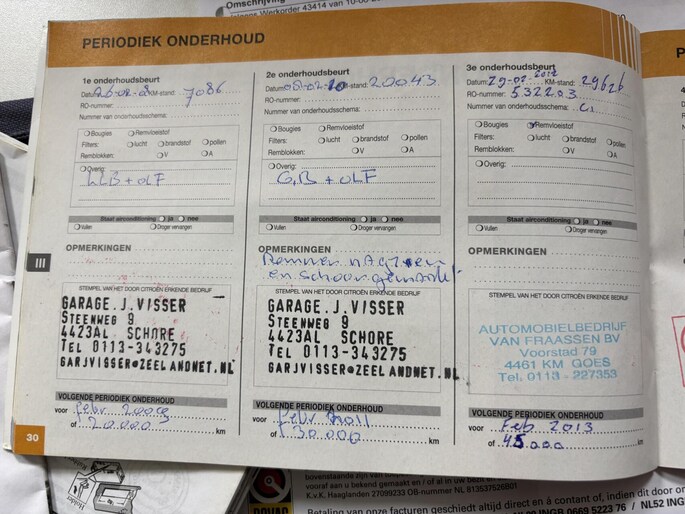 Omschrijving
Werkorder 43414 van 10-06-
PERIODIEK ONDERHOUD
1e onderhoudsbeurt
Datum: 26-02-08 KM-stand: 7086
RO-nummer:
Nummer van onderhoudsschema:
Bougies Remvloeistof
Filters: lucht brandstof pollen
Remblokken: V A
Overig:
+ OLF
Staat airconditioning ja nee
Vullen Droger vervangen
OPMERKINGEN
STEMPEL VAN HET DOOR CITROËN ERKENDE BEDRIJF
GARAGE.J.VISSER
STEENWEG 9
4423AL SCHORE
TEL 0113-343275
GARJVISSER@ZEELANDNET.NL
VOLGENDE PERIODIEK ONDERHOUD
voor febr 2009
of 20.000 km
30
III
2e onderhoudsbeurt
Datum: 08-02-10 KM-stand: 20043
RO-nummer:
Nummer van onderhoudsschema:
Bougies Remvloeistof
Filters: lucht brandstof pollen
Remblokken: V A
Overig:
G,B + OLF
Staat airconditioning ja nee
Vullen Droger vervangen
OPMERKINGEN
Remmen nagezien
en schoongemaakt
STEMPEL VAN HET DOOR CITROËN ERKENDE BEDRIJF
GARAGE.J.VISSER
STEENWEG 9
4423AL SCHORE
TEL 0113-343275
GARJVISSER@ZEELANDNET.NL
VOLGENDE PERIODIEK ONDERHOUD
voor Febr 2011
of 30.000 km
3e onderhoudsbeurt
Datum: 29-02-2012 KM-stand: 29626
RO-nummer: 532203
Nummer van onderhoudsschema: C1
Bougies Remvloeistof
Filters: lucht brandstof pollen
Remblokken: V A
Overig:
Staat airconditioning ja nee
Vullen Droger vervangen
OPMERKINGEN
STEMPEL VAN HET DOOR CITROËN ERKENDE BEDRIJF
AUTOMOBIELBEDRIJF
VAN FRAASSEN BV
Voorstad 79
4461 KM GOES
Tel. 0113 - 227353
VOLGENDE PERIODIEK ONDERHOUD
voor Feb 2013
of 45.000 km
Houder
bovenstaande zijn van
vooraf aan u bekend gemaakt en / of al in uw bezit
K.v.K. Haaglanden 27099233 OB-nummer NL 813537528B01
Betaling van onze facturen geschiedt altijd direct en á contant of, indien dit door on
INGB 0669 5223 76 / NL52 ING